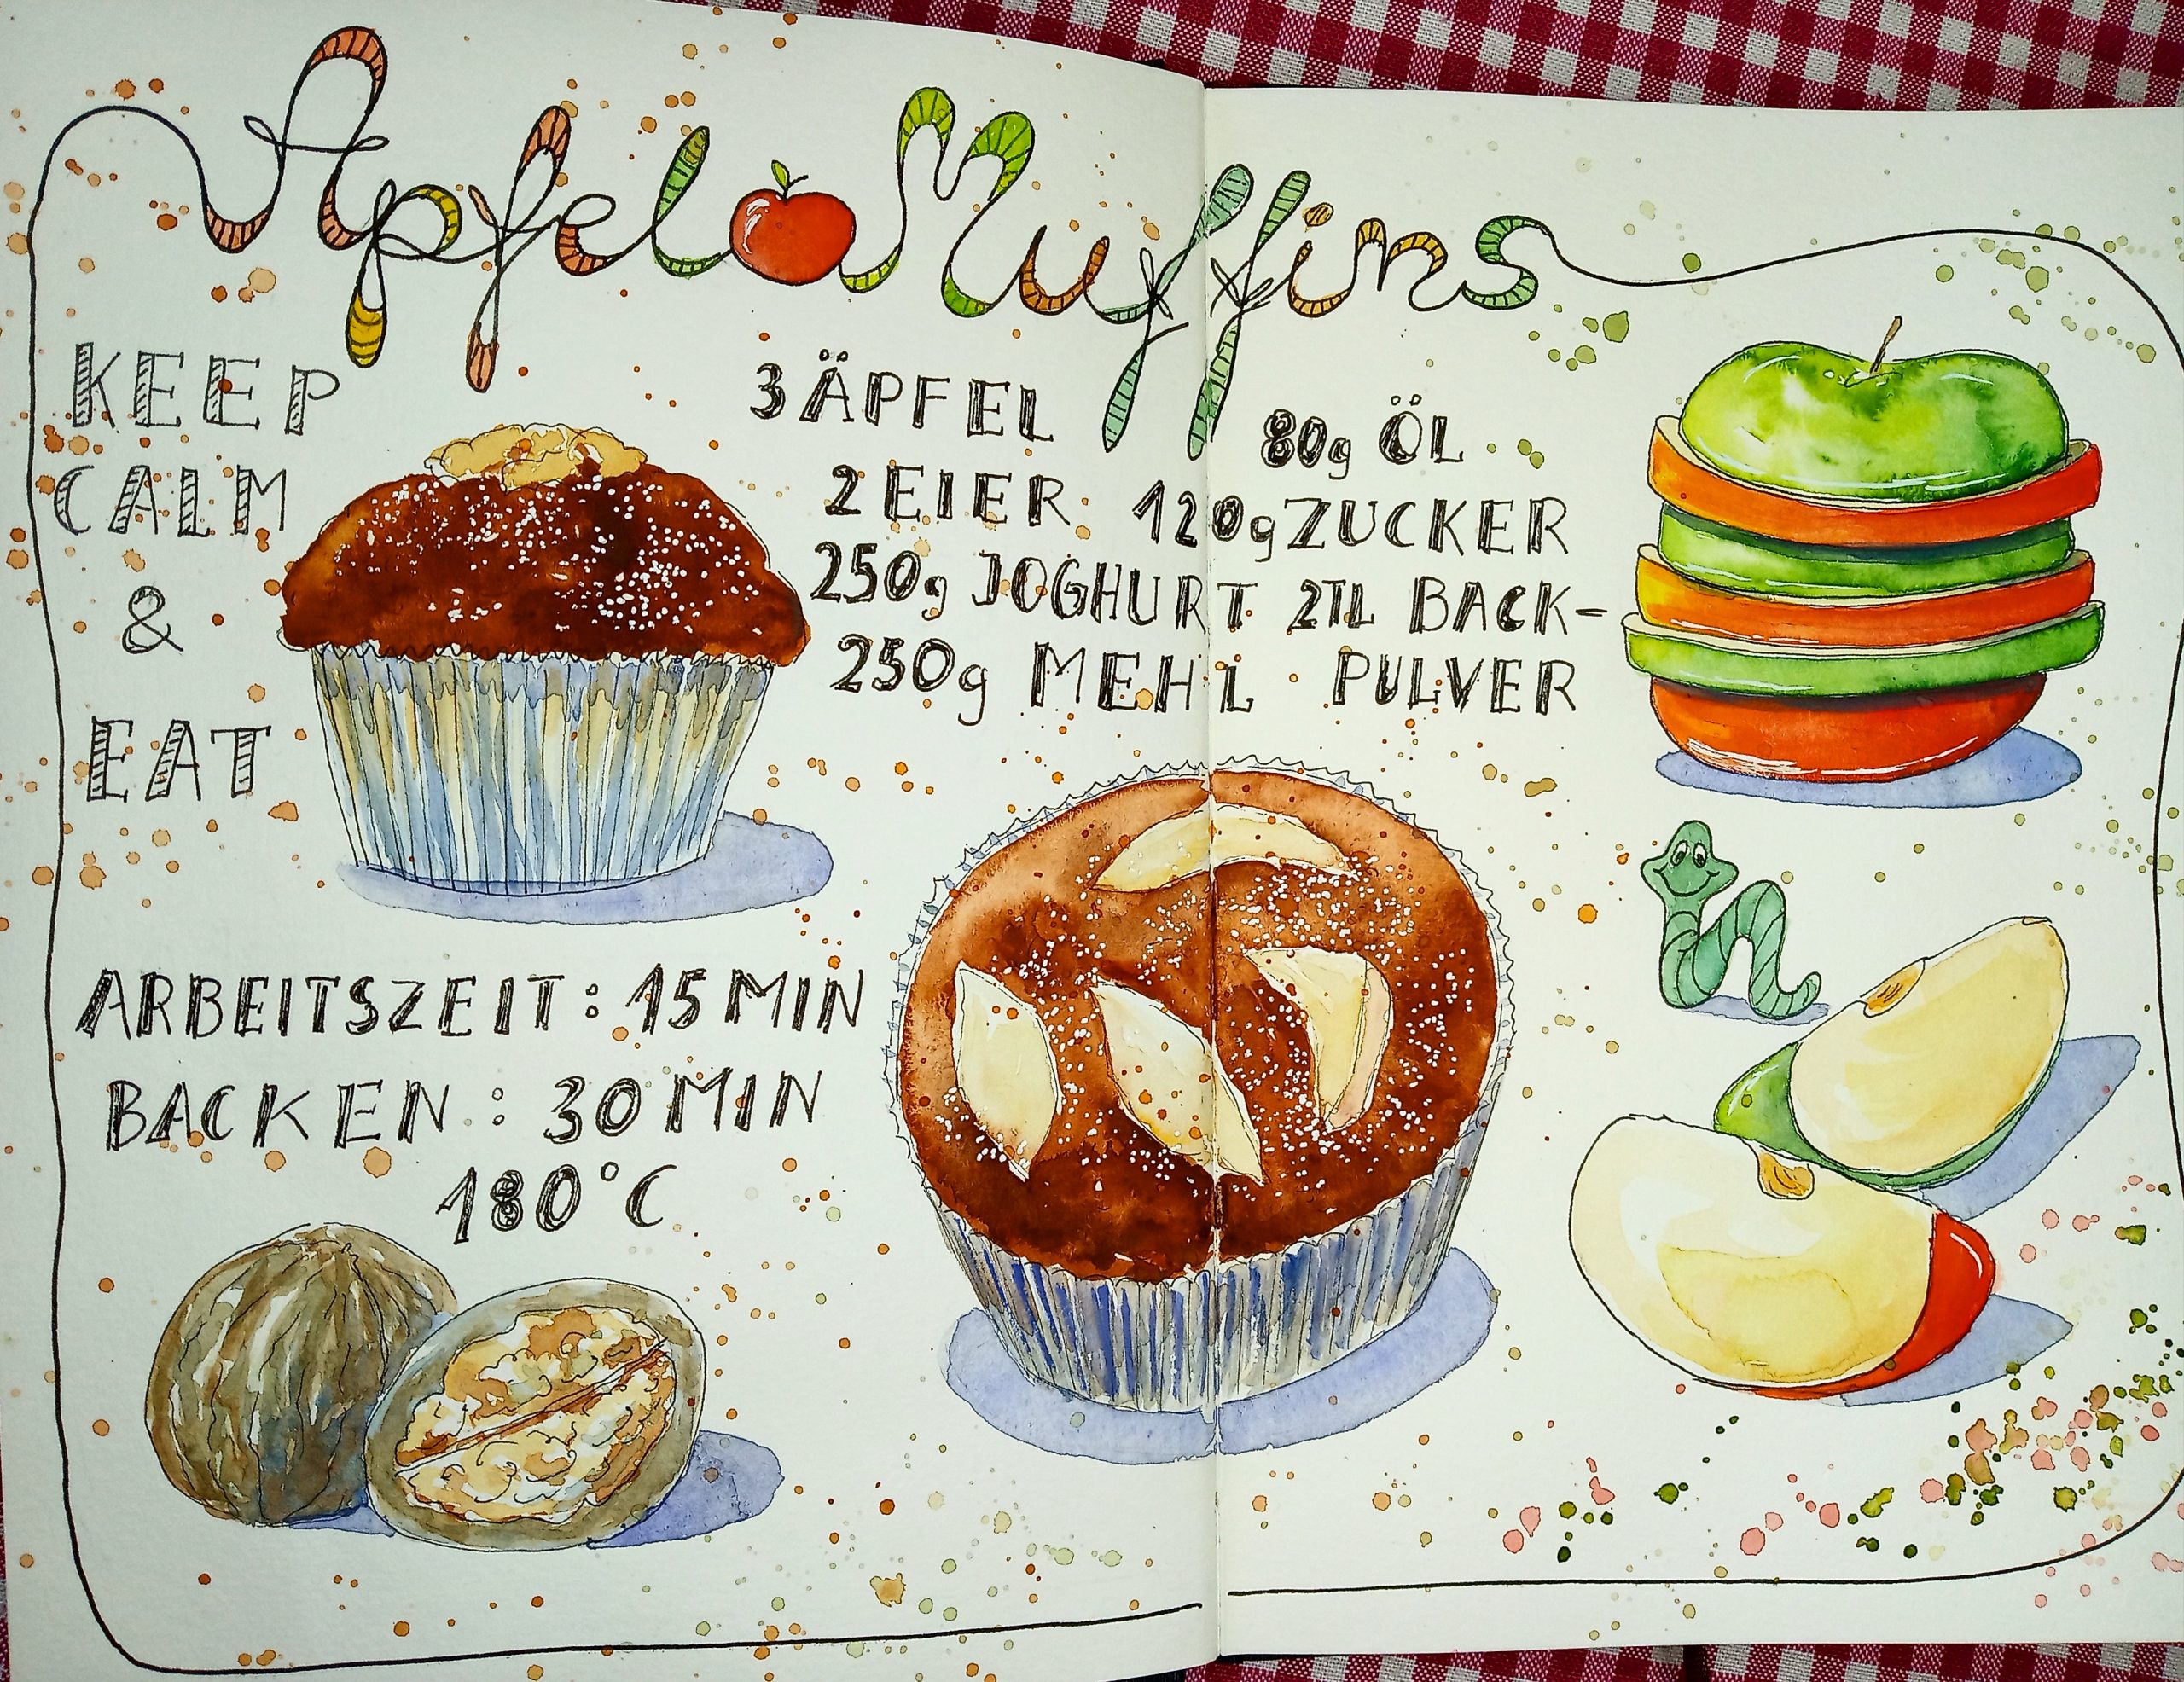 Apfel Muffins
KEEP
CALM
&
EAT
3 ÄPFEL
2 EIER
250g JOGHURT
250g MEHL
80g ÖL
120g ZUCKER
2TL BACK-
PULVER
ARBEITSZEIT: 15 MIN
BACKEN: 30 MIN
180°C